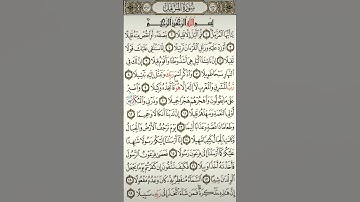 سُورَةُ الْمُزَّمِّلِ
بِسْمِ اللَّهِ الرَّحْمَٰنِ الرَّحِيمِ
يَا أَيُّهَا الْمُزَّمِّلُ ١ قُمِ اللَّيْلَ إِلَّا قَلِيلًا ٢ نِصْفَهُ أَوِ انْقُصْ مِنْهُ قَلِيلًا ٣
أَوْ زِدْ عَلَيْهِ وَرَتِّلِ الْقُرْآنَ تَرْتِيلًا ٤ إِنَّا سَنُلْقِي عَلَيْكَ قَوْلًا
ثَقِيلًا ٥ إِنَّ نَاشِئَةَ اللَّيْلِ هِيَ أَشَدُّ وَطْئًا وَأَقْوَمُ قِيلًا ٦ إِنَّ لَكَ فِي
النَّهَارِ سَبْحًا طَوِيلًا ٧ وَاذْكُرِ اسْمَ رَبِّكَ وَتَبَتَّلْ إِلَيْهِ تَبْتِيلًا ٨
رَبُّ الْمَشْرِقِ وَالْمَغْرِبِ لَا إِلَٰهَ إِلَّا هُوَ فَاتَّخِذْهُ وَكِيلًا ٩ وَاصْبِرْ
عَلَىٰ مَا يَقُولُونَ وَاهْجُرْهُمْ هَجْرًا جَمِيلًا ١٠ وَذَرْنِي وَالْمُكَذِّبِينَ
أُولِي النَّعْمَةِ وَمَهِّلْهُمْ قَلِيلًا ١١ إِنَّ لَدَيْنَا أَنْكَالًا وَجَحِيمًا ١٢
وَطَعَامًا ذَا غُصَّةٍ وَعَذَابًا أَلِيمًا ١٣ يَوْمَ تَرْجُفُ الْأَرْضُ وَالْجِبَالُ
وَكَانَتِ الْجِبَالُ كَثِيبًا مَهِيلًا ١٤ إِنَّا أَرْسَلْنَا إِلَيْكُمْ رَسُولًا شَاهِدًا
عَلَيْكُمْ كَمَا أَرْسَلْنَا إِلَىٰ فِرْعَوْنَ رَسُولًا ١٥ فَعَصَىٰ فِرْعَوْنُ الرَّسُولَ
فَأَخَذْنَاهُ أَخْذًا وَبِيلًا ١٦ فَكَيْفَ تَتَّقُونَ إِنْ كَفَرْتُمْ يَوْمًا يَجْعَلُ
الْوِلْدَانَ شِيبًا ١٧ السَّمَاءُ مُنْفَطِرٌ بِهِ كَانَ وَعْدُهُ مَفْعُولًا ١٨
إِنَّ هَٰذِهِ تَذْكِرَةٌ فَمَنْ شَاءَ اتَّخَذَ إِلَىٰ رَبِّهِ سَبِيلًا ١٩